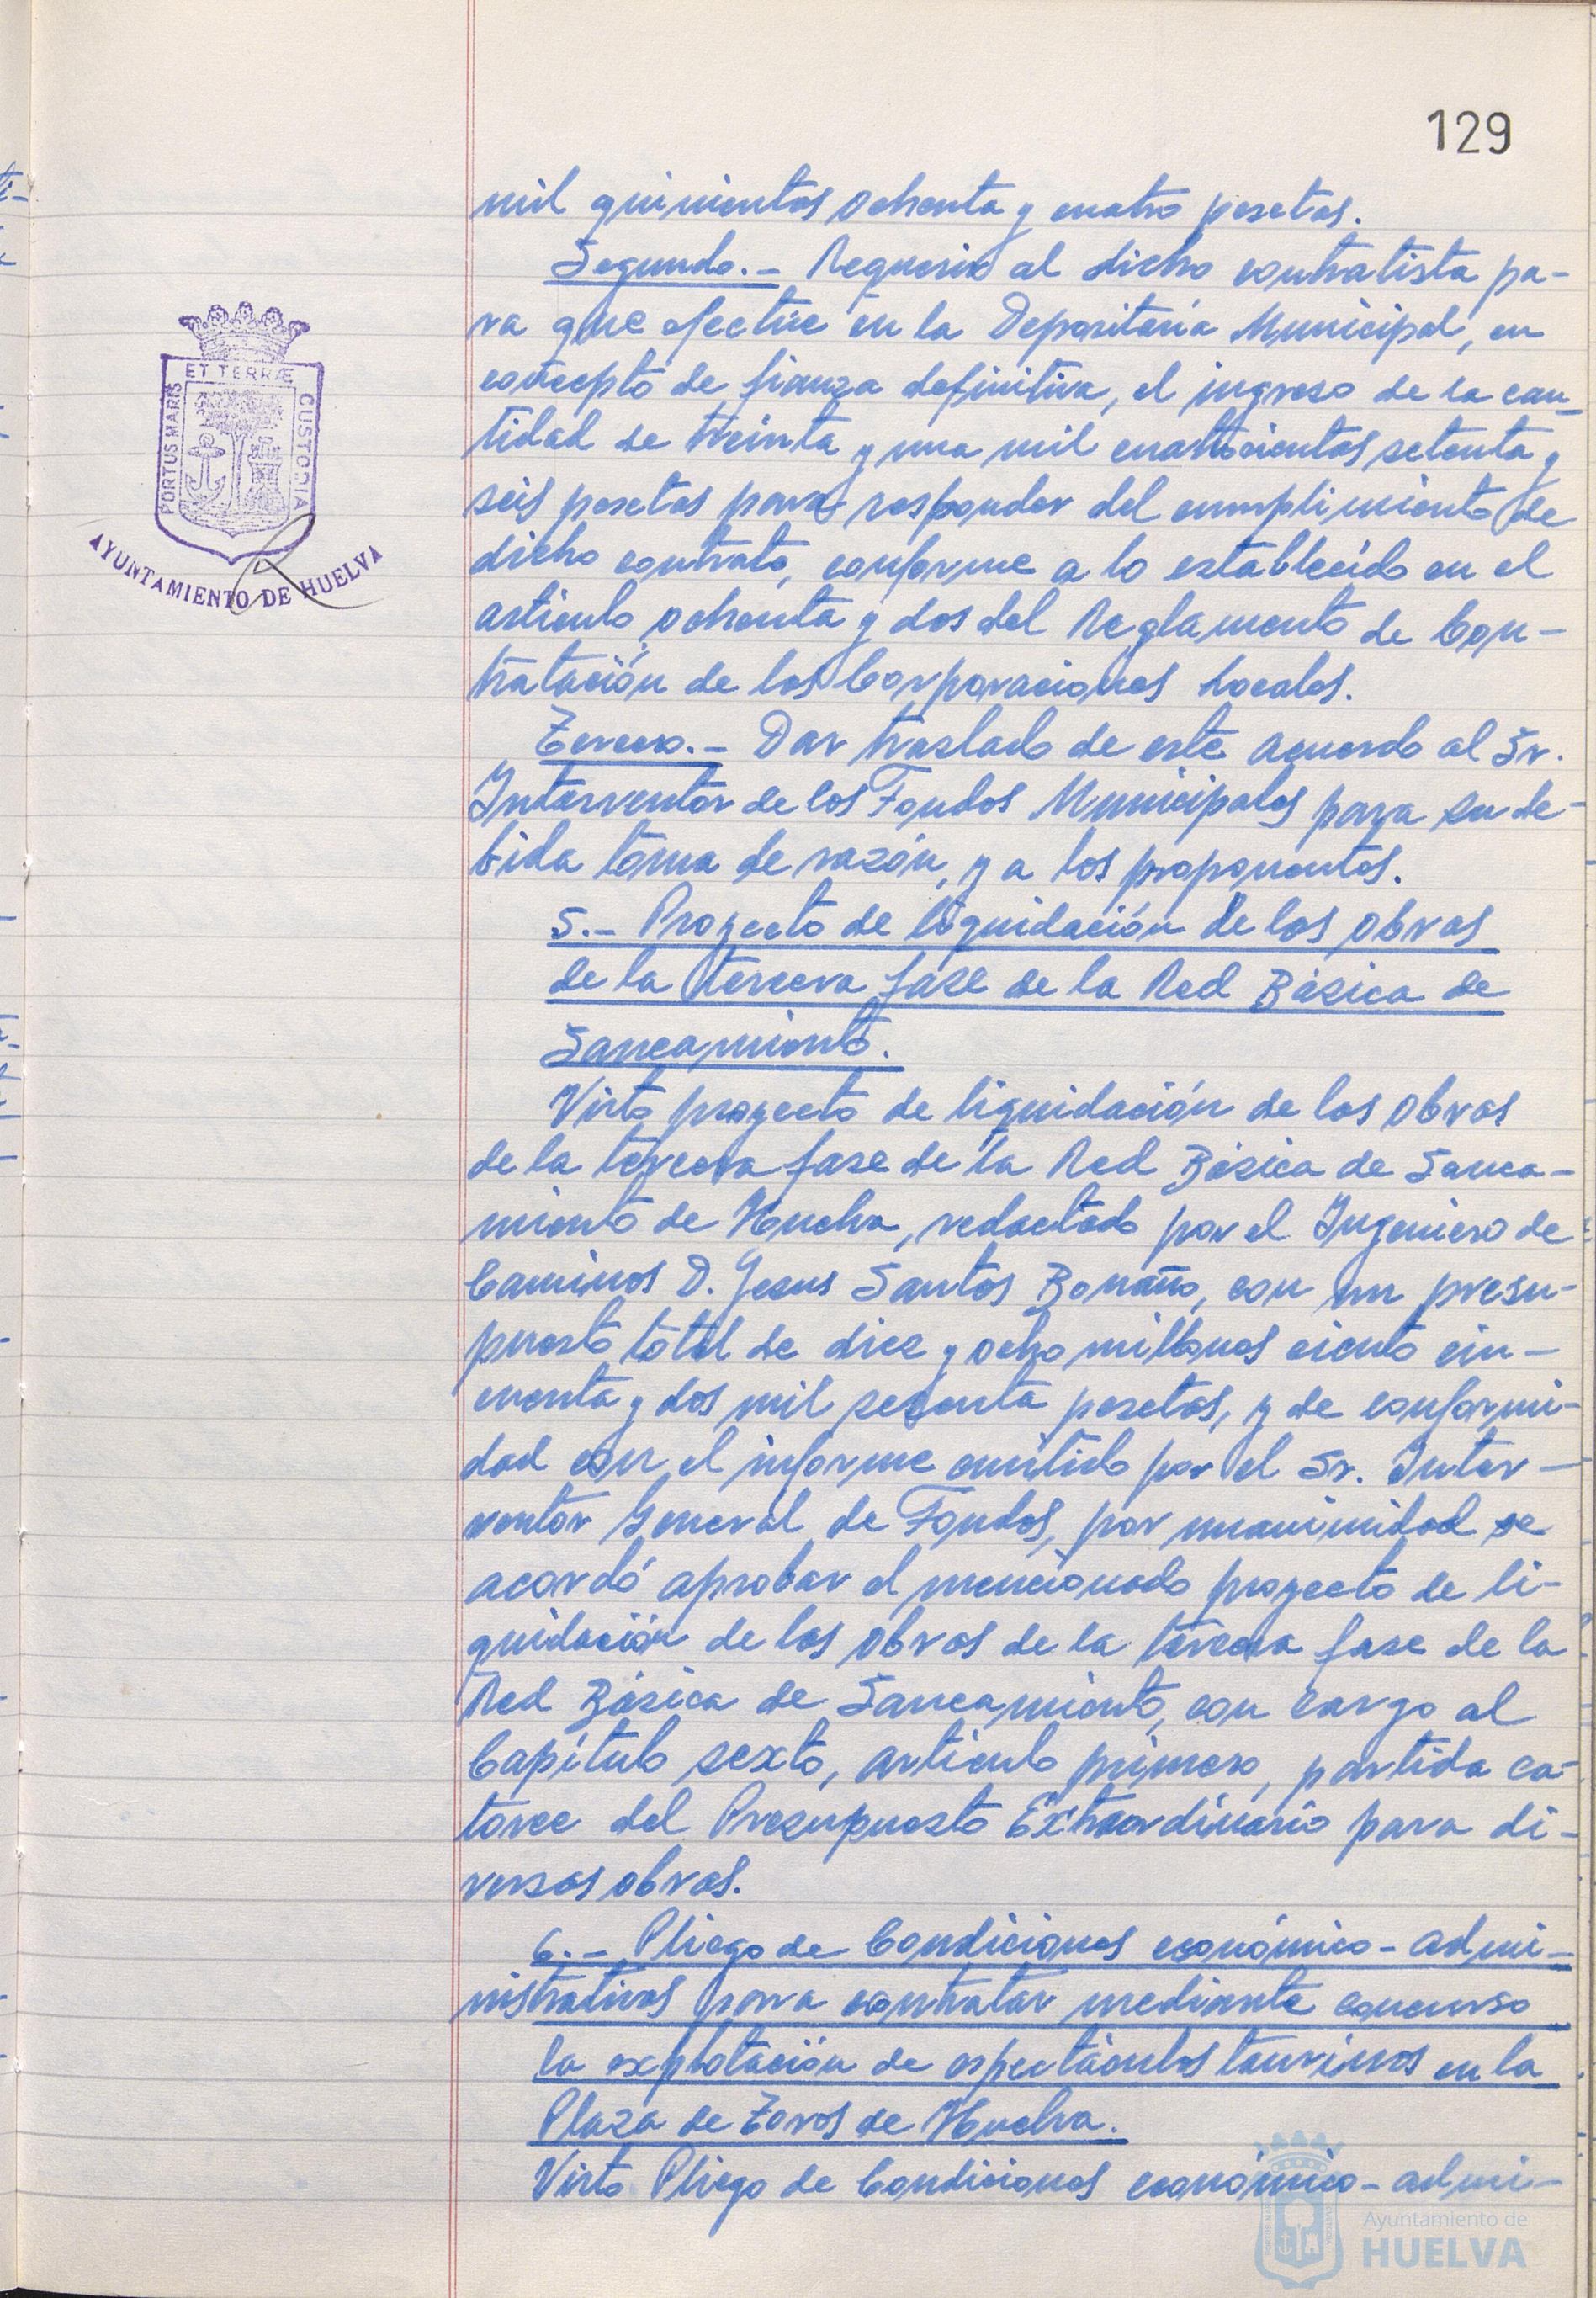 129
mil quinientas ochenta y cuatro pesetas.
Segundo.- Requerir al dicho contratista pa-
ra que efectúe en la Depositaría Municipal, en
concepto de fianza definitiva, el ingreso de la can-
tidad de treinta y una mil cuatrocientas setenta y
seis pesetas para responder del cumplimiento de
dicho contrato, conforme a lo establecido en el
artículo ochenta y dos del Reglamento de Con-
tratación de las Corporaciones Locales.
Tercero.- Dar traslado de este acuerdo al Sr.
Interventor de los Fondos Municipales para su de-
bida toma de razón, y a los proponentes.
5.- Proyecto de liquidación de las obras
de la tercera fase de la Red Básica de
Saneamiento.
Visto proyecto de liquidación de las obras
de la tercera fase de la Red Básica de Sanea-
miento de Huelva, redactado por el Ingeniero de
Caminos D. Jesus Santos Bonaño, con un presu-
puesto total de diez y ocho millones ciento cin-
cuenta y dos mil sesenta pesetas, y de conformi-
dad con el informe emitido por el Sr. Inter-
ventor General de Fondos, por unanimidad se
acordó aprobar el mencionado proyecto de li-
quidación de las obras de la tercera fase de la
Red Básica de Saneamiento, con cargo al
Capítulo sexto, artículo primero, partida ca-
torce del Presupuesto Extraordinario para di-
versas obras.
6.- Pliego de Condiciones económico-admi-
nistrativas para contratar mediante concurso
la explotación de espectáculos taurinos en la
Plaza de Toros de Huelva.
Visto Pliego de Condiciones económico-admi-
PORTUS MARIS
ET TERRÆ
CUSTODIA
AYUNTAMIENTO DE HUELVA
Ayuntamiento de
HUELVA